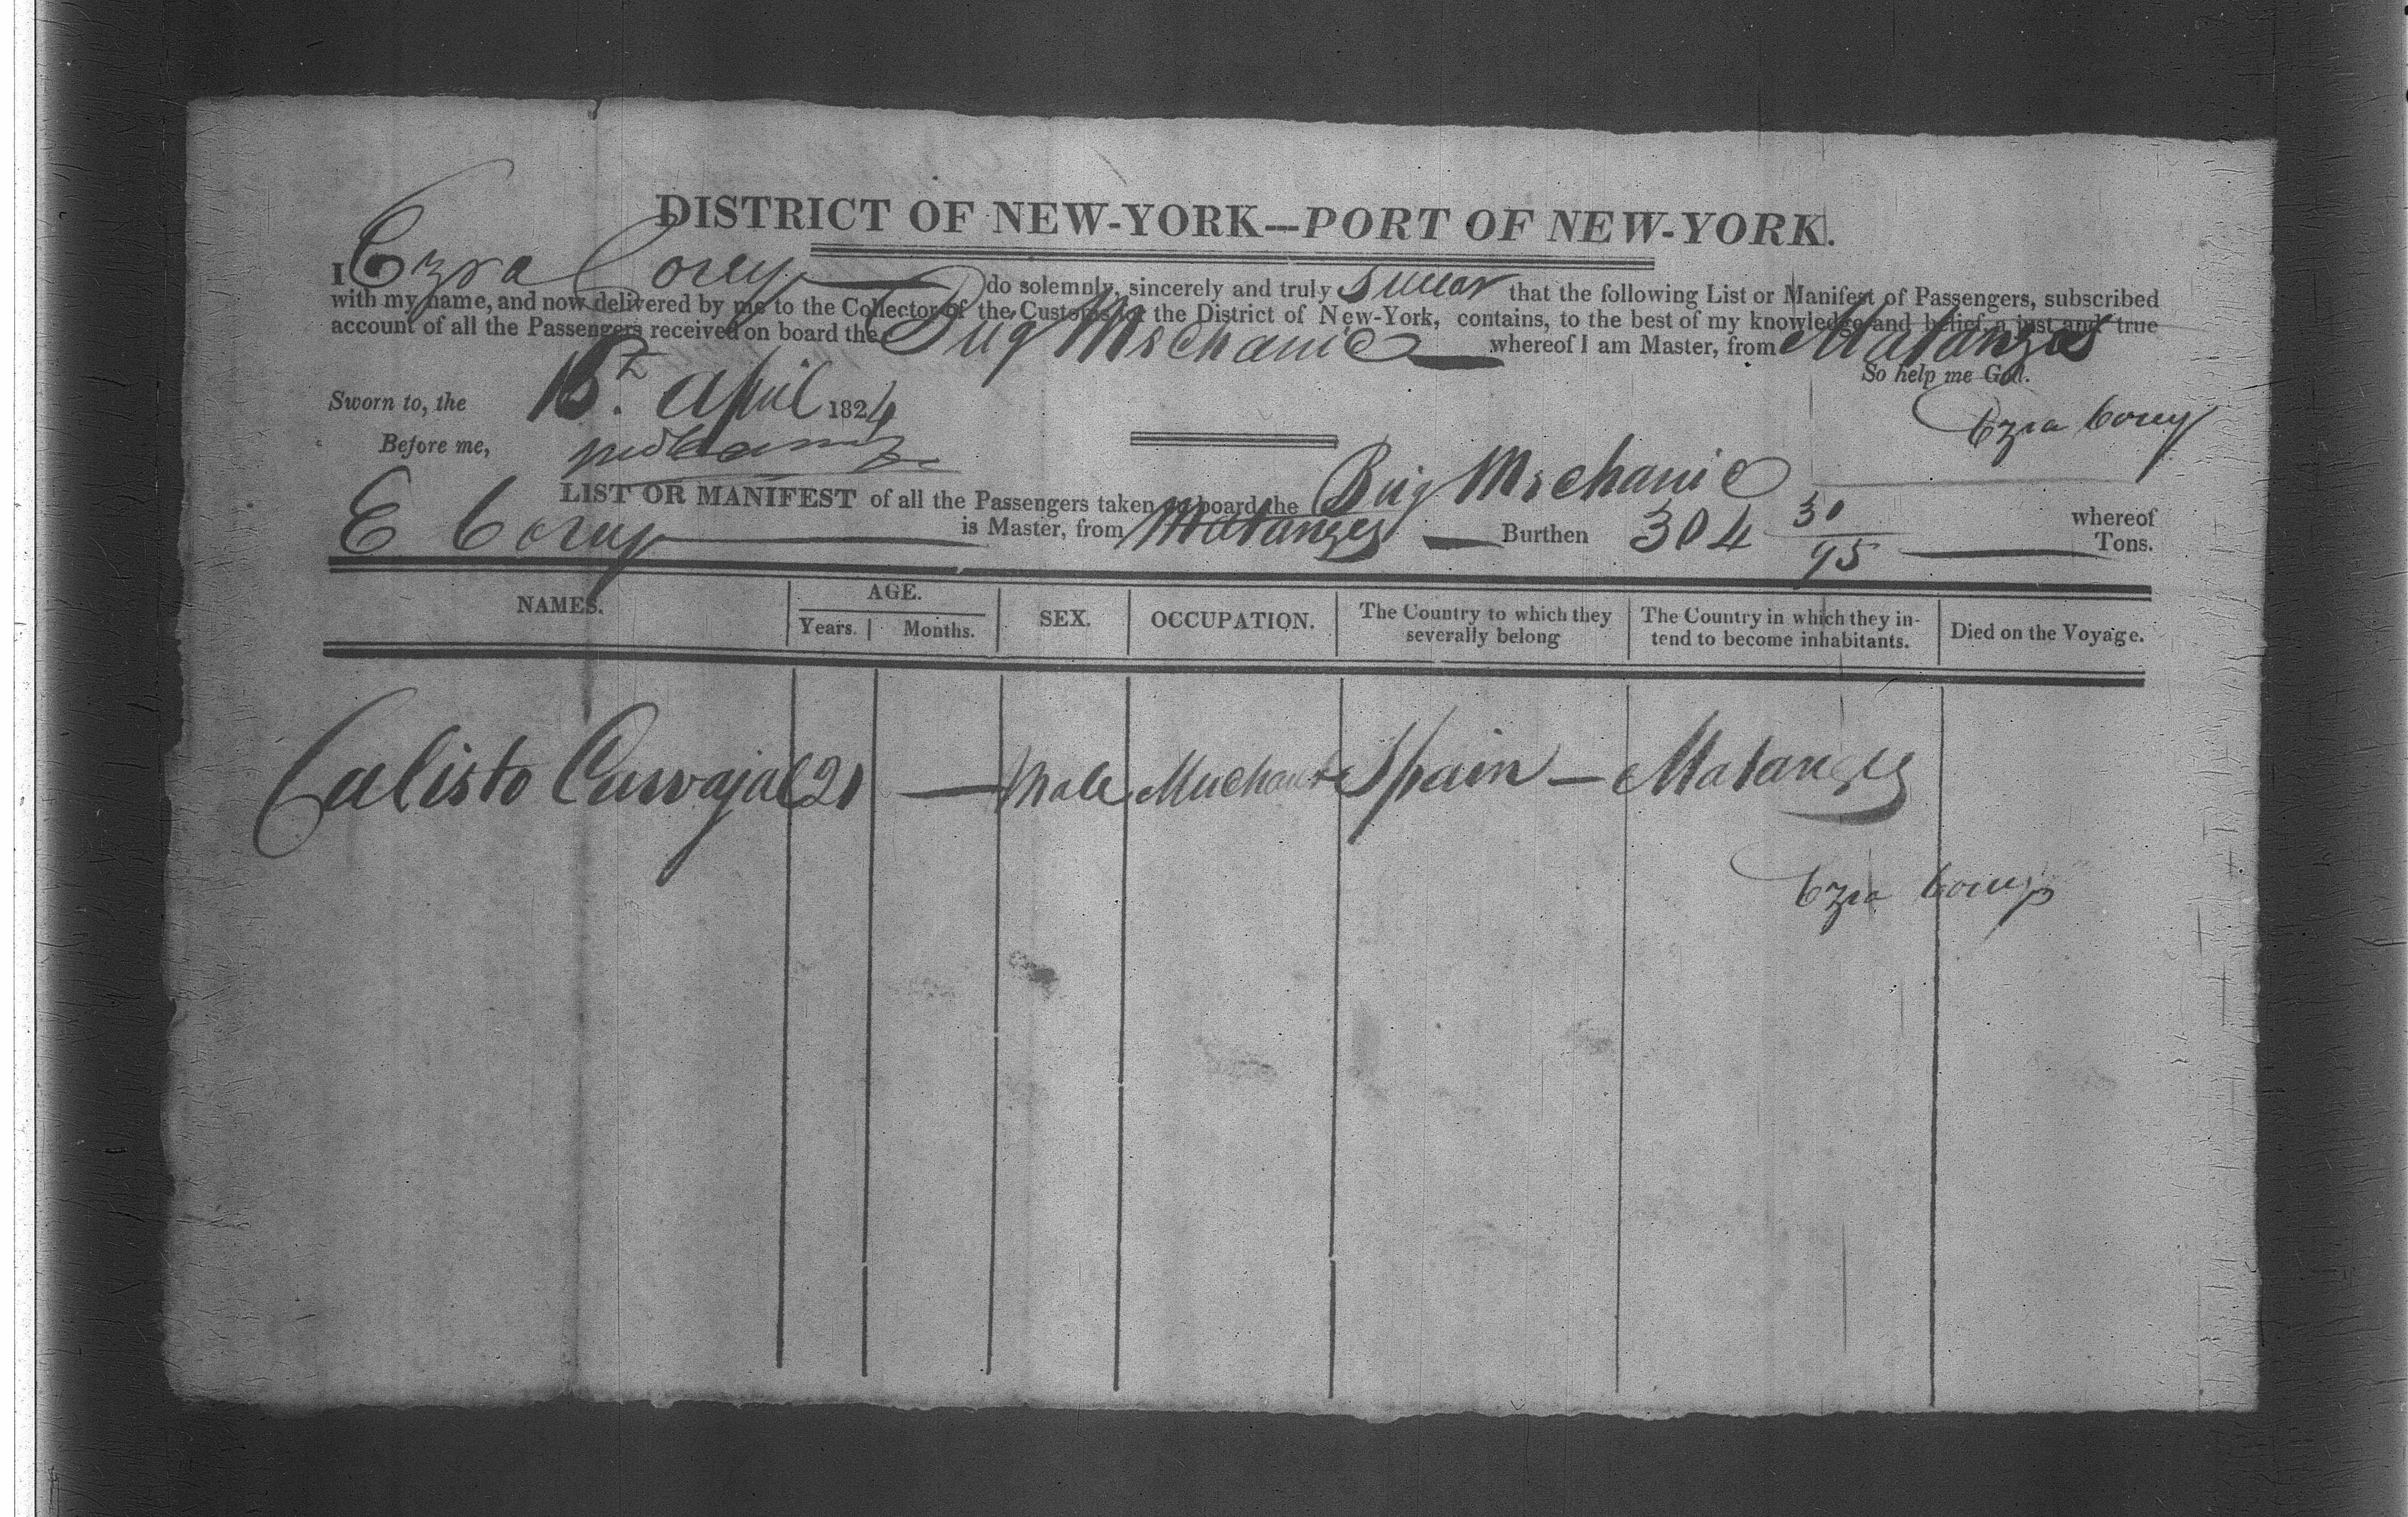 DISTRICT OF NEW-YORK---PORT OF NEW-YORK.
I Ezra Corey do solemnly, sincerely and truly swear that the following List or Manifest of Passengers, subscribed
with my name, and now delivered by me to the Collector of the Customs for the District of New-York, contains, to the best of my knowledge and belief, a just and true
account of all the Passengers received on board the Brig Mechanic whereof I am Master, from Matanzas
So help me God.
Sworn to, the April 1824
Ezra Corey
Before me,
LIST OR MANIFEST of all the Passengers taken on board the Brig Mechanic whereof
E Corey is Master, from Matanzes Burthen 304 30/95 Tons.
NAMES. AGE. Years. Months. SEX. OCCUPATION. The Country to which they severally belong The Country in which they intend to become inhabitants. Died on the Voyage.
Calisto Carvajal 21 — Male Merchant Spain — Matanzes
Ezra Corey